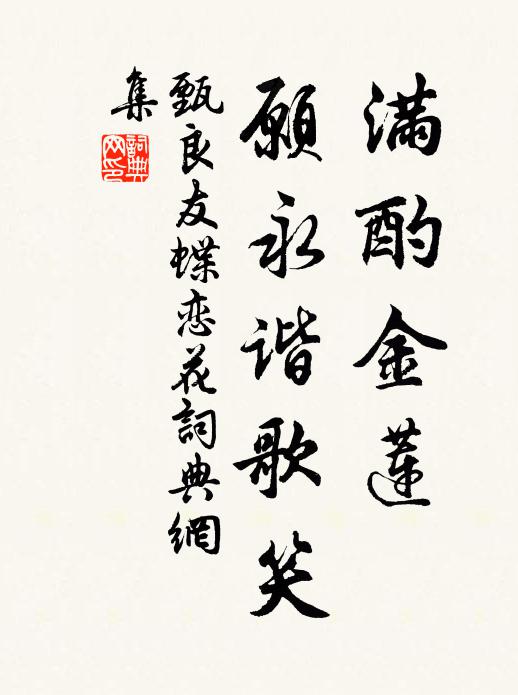 满酌金莲
願永谐歌笑
甄良友蝶恋花詞典網
集
詞典
网印